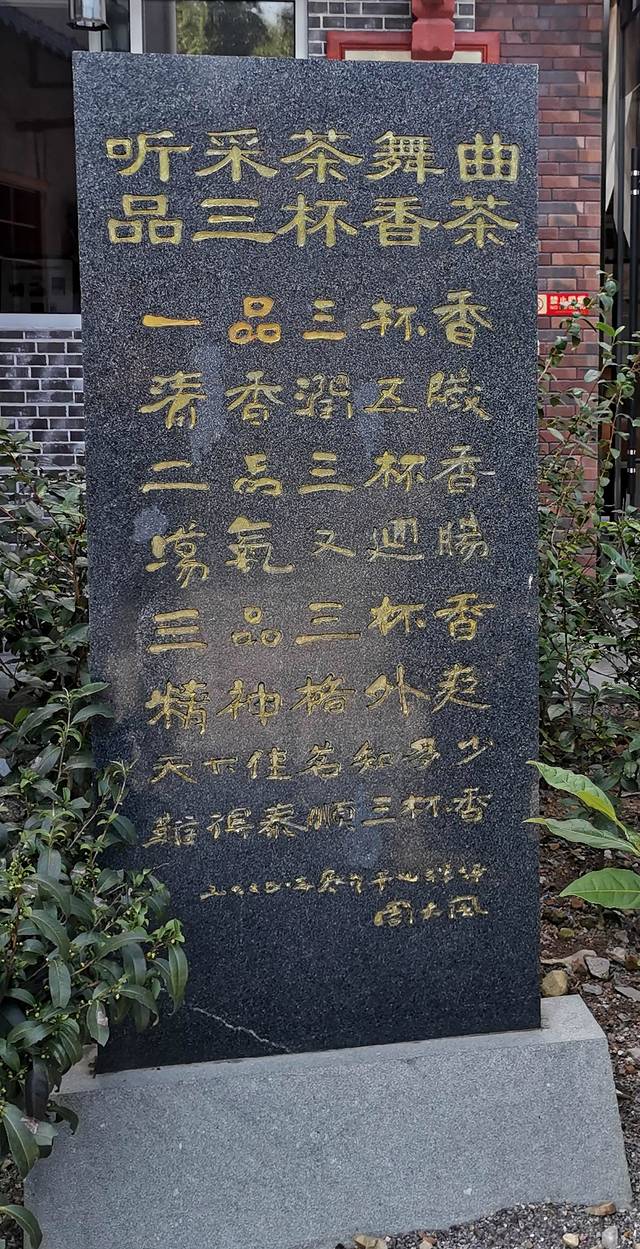 听采茶舞曲
品三杯香茶
一品三杯香
清香潤五臟
二品三杯香
蕩氣又迴腸
三品三杯香
精神格外爽
天下佳茗知多少
難得泰順三杯香
周大風